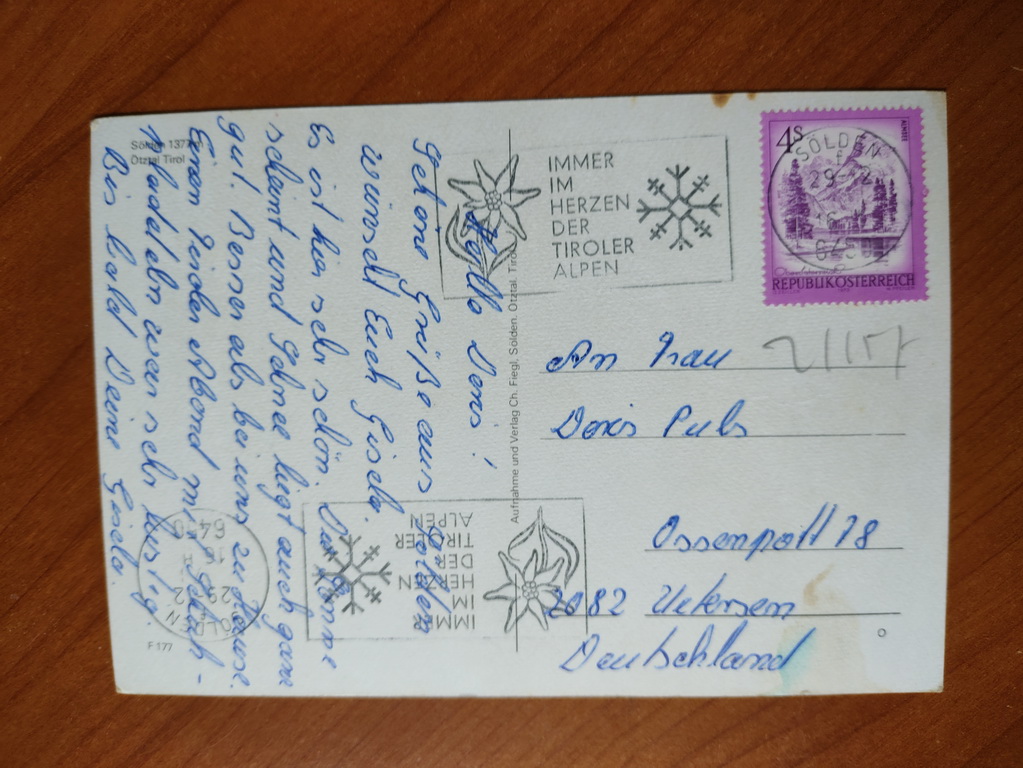 Sölden 1377 m
Ötztal Tirol
Hallo Doris!
Schöne Grüße aus Sölden
wünscht Euch Gisela.
Es ist hier sehr schön. Die Sonne
scheint und Schnee liegt auch ganz
gut. Besser als bei uns zu Hause.
Einen Tiroler Abend mit Schuh-
plattdeln war sehr lustig.
Bis bald Deine Gisela.
F 177
Aufnahme und Verlag Ch. Fiegl, Sölden, Ötztal, Tirol
IMMER
IM
HERZEN
DER
TIROLER
ALPEN
SÖLDEN
29.-2
6450
4 S
ALMSEE
REPUBLIK ÖSTERREICH
21157
An Frau
Doris Puls
Ossenpatt 28
2082 Uetersen
Deutschland
IMMER
IM
HERZEN
DER
TIROLER
ALPEN
SÖLDEN
29.-2
6450